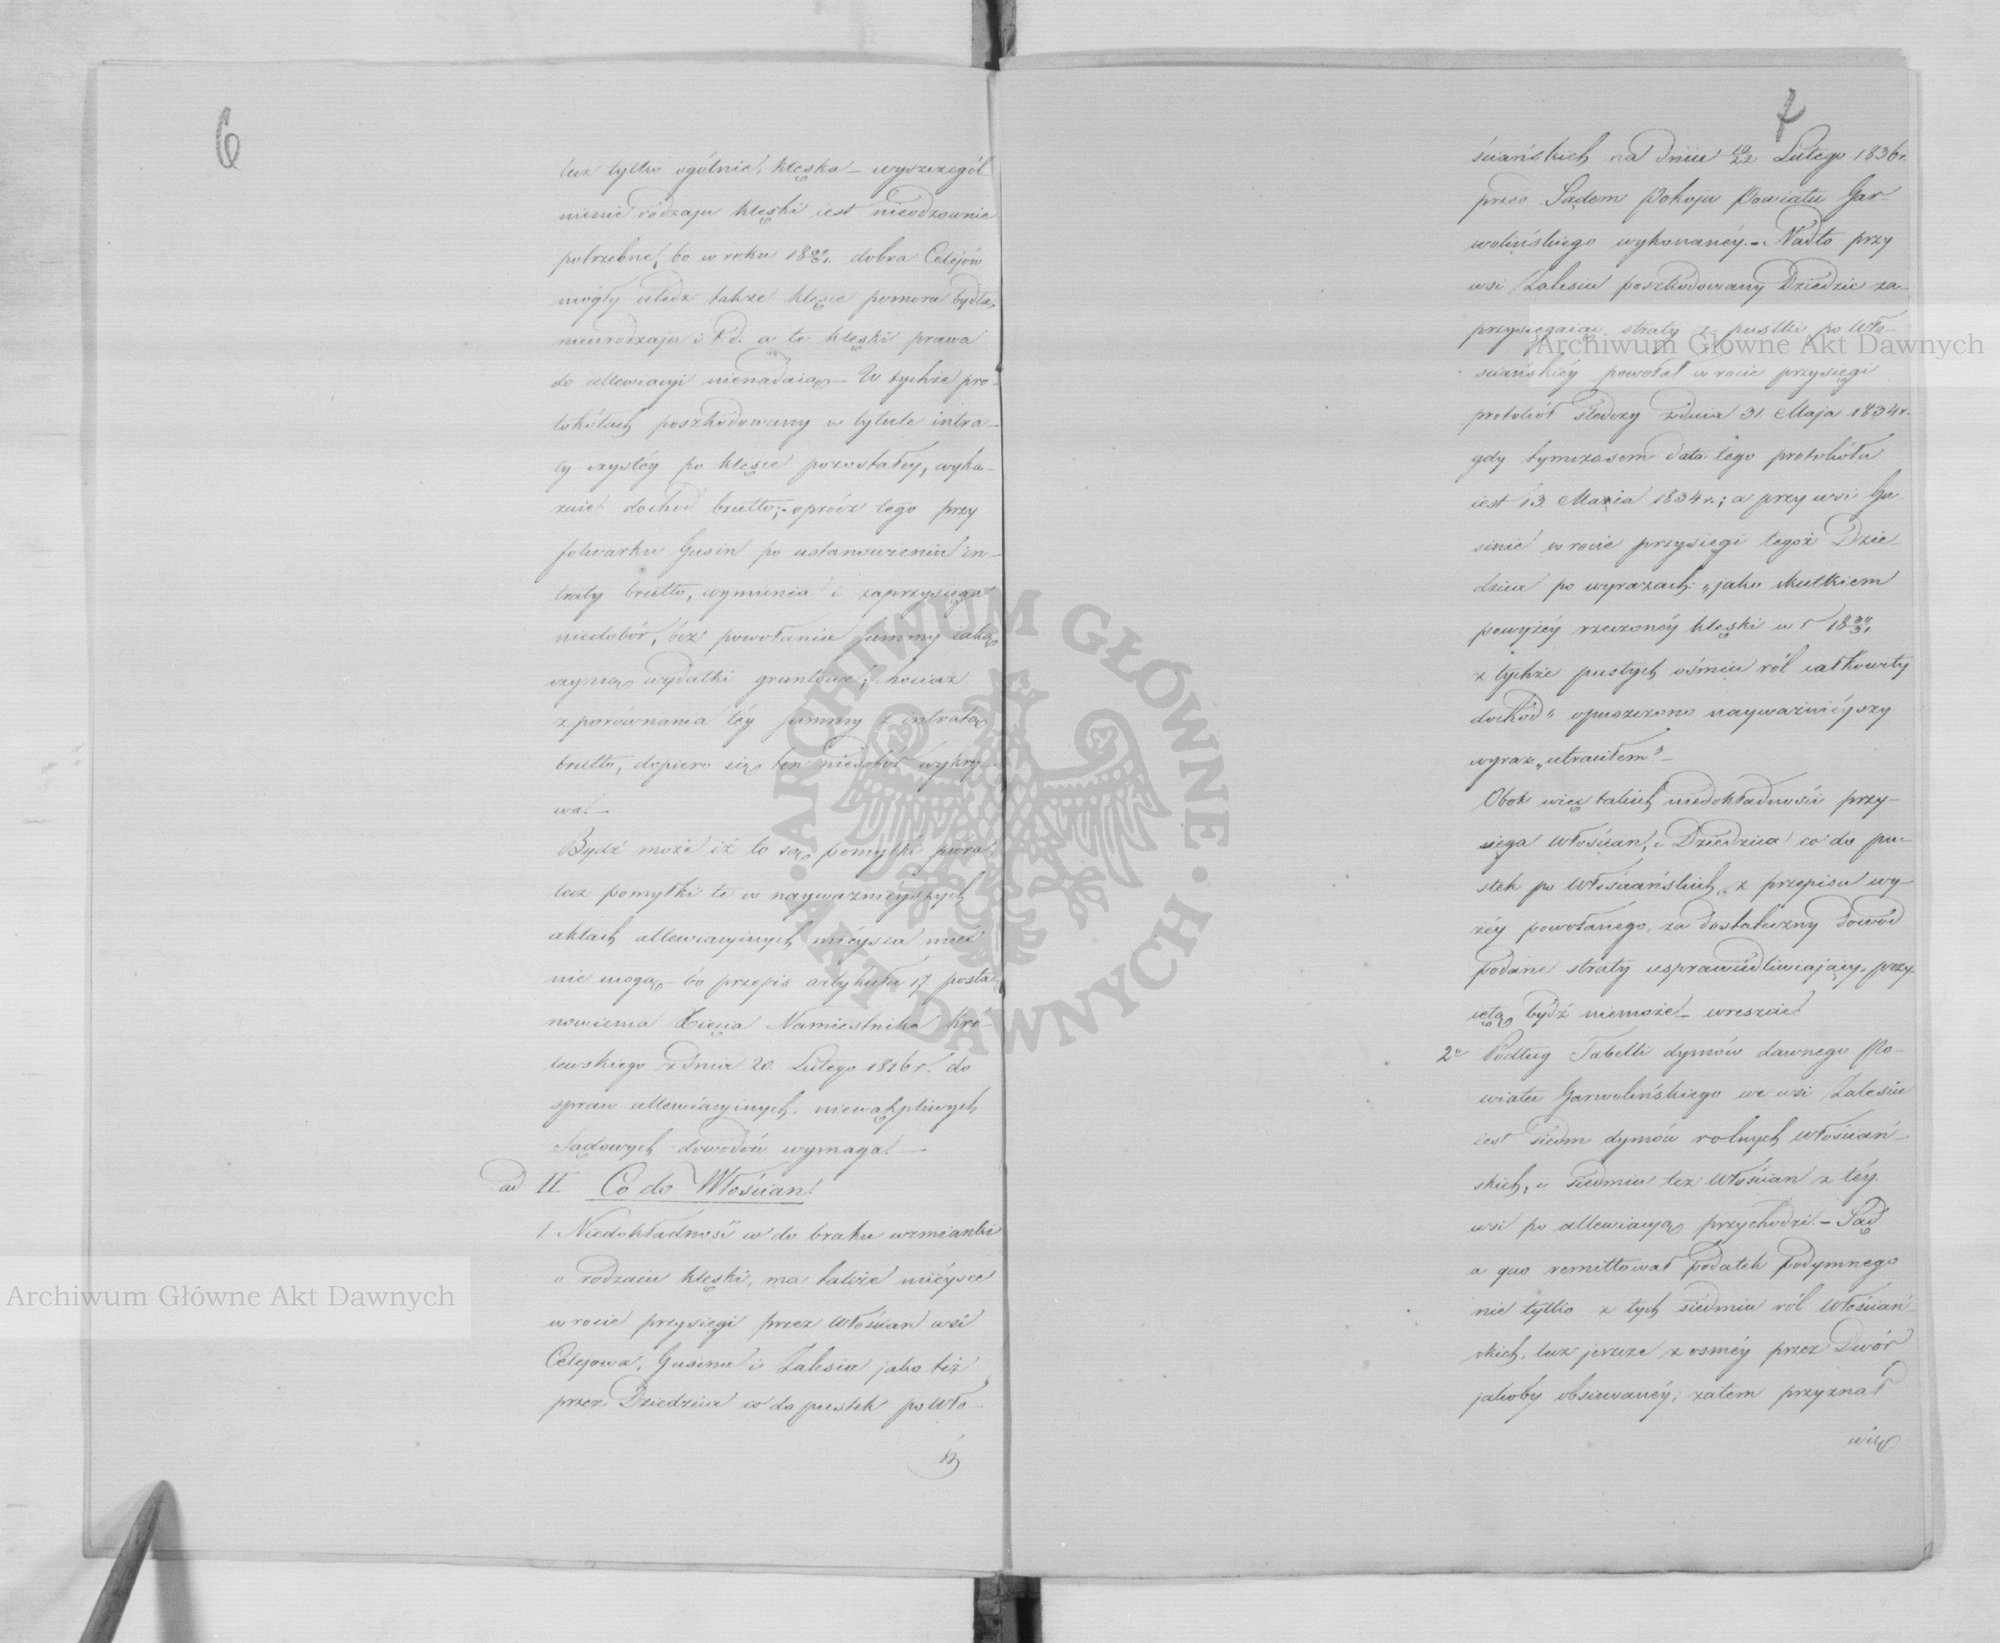 6
lecz tylko ogólnie, klęska – wyszczegól
nienie rodzaju klęski iest nieodzownie
potrzebne, bo w roku 18 30/31. dobra Celejów
mogły uledz także klęsce pomoru bydła,
nieurodzaju i t d. a te klęski prawa
do allewiacyi nienadaią – W tychże pro-
tokółach poszkodowany w tytule intra-
ty czystéy po klęsce pozostałéy, wyka-
zuie dochód brutto; – oprócz tego przy
folwarku Gusin po ustanowieniu in-
traty brutto, wymienia i zaprzysięga
niedobór, bez powołania summy iaką
czynią wydatki gruntowe; chociaż
z porównania téy summy z intratą
brutto, dopiero się ten niedobór wykry-
wa. –
Bydź może iż to są pomyłki pióra,
lecz pomyłki te w nayważnieyszych
aktach allewiacyinych mieysca mieć
nie mogą – bo przepis artykułu 17 posta-
nowienia Xięcia Namiestnika Kró-
lewskiego z dnia 20. Lutego 1816 r. do
spraw allewiacyinych, niewątpliwych
Sądowych dowodów wymaga. –
ad II Co do Włościan.
1 Niedokładność co do braku wzmianki
o rodzaiu klęski, ma także mieysce
w rocie przysięgi przez Włościan wsi
Celejowa, Gusina i Zalesia jako też
przez Dziedzica co do pustek po Wło-
7
ściańskich na dniu 10/22 Lutego 1836 r.
przed Sądem Pokoju Powiatu Gar-
wolińskiego wykonanéy. – Nadto przy
wsi Zalesiu poszkodowany Dziedzic za-
przysięgaiąc straty z pustki po Wło-
sciańskiéy powołał w rocie przysięgi
protokół śledczy z dnia 31 Maja 1834 r.
gdy tymczasem data tego protokółu
iest 13 Marca 1834 r.; a przy wsi Gu-
sinie w rocie przysięgi tegoż Dzie
dzica po wyrazach: „jako skutkiem
powyżéy rzeczonéy klęski w r 18 30/31
z tychże pustych ośmiu ról całkowity
dochód" opuszczono nayważnieyszy
wyraz „utraciłem" –
Obok więc takich niedokładności przy-
sięga Włościan, i Dziedzica co do pu-
stek po Włościańskich, z przepisu wy-
żéy powołanego, za dostateczny dowód
podane straty usprawiedliwiaiący, przy
iętą bydź niemoże – wreszcie
2o Podług Tabelli dymów dawnego Po-
wiatu Garwolińskiego we wsi Zalesiu
iest siedm dymów rolnych Włościań-
skich, i siedmiu też Włościan z téy
wsi po allewiacyą przychodzi. – Sąd
a quo remittował podatek podymnego
nie tylko z tych siedmiu ról Włościań
skich, lecz jeszcze z ósméy przez Dwór
jakoby obsiewanéy; zatem przyznał
więc
ARCHIWUM GŁÓWNE
· AKT DAWNYCH ·
Archiwum Główne Akt Dawnych
Archiwum Główne Akt Dawnych